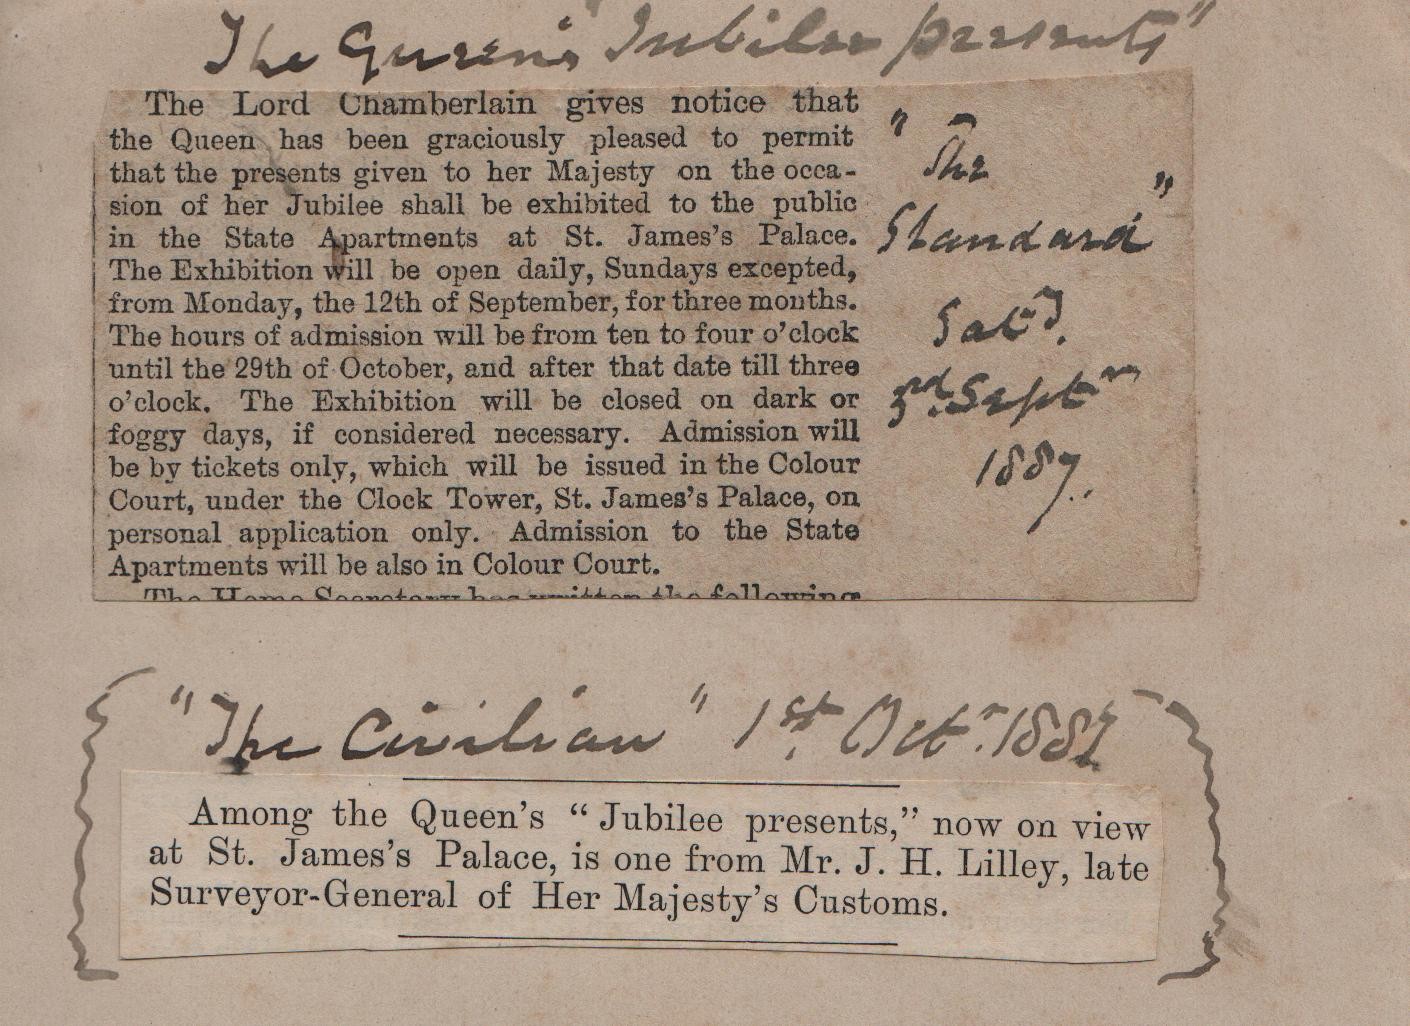 The Queen's Jubilee presents"
The Lord Chamberlain gives notice that
the Queen has been graciously pleased to permit
that the presents given to her Majesty on the occa-
sion of her Jubilee shall be exhibited to the public
in the State Apartments at St. James's Palace.
The Exhibition will be open daily, Sundays excepted,
from Monday, the 12th of September, for three months.
The hours of admission will be from ten to four o'clock
until the 29th of October, and after that date till three
o'clock. The Exhibition will be closed on dark or
foggy days, if considered necessary. Admission will
be by tickets only, which will be issued in the Colour
Court, under the Clock Tower, St. James's Palace, on
personal application only. Admission to the State
Apartments will be also in Colour Court.
The Home Secretary has written the following
"The
Standard"
Satd.
3rd. Septr
1887.
"The Civilian" 1st. Octr. 1887
Among the Queen's "Jubilee presents," now on view
at St. James's Palace, is one from Mr. J. H. Lilley, late
Surveyor-General of Her Majesty's Customs.